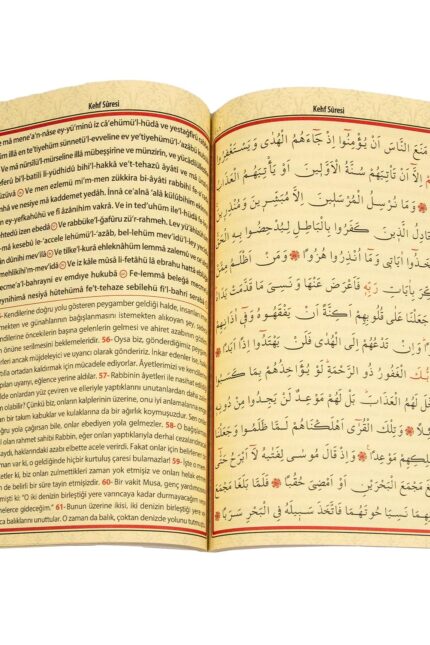 Kehf Sûresi
mâ mene'a'n-nâse ey-yü'minû iz câ'ehümü'l-hüdâ ve yestağfirû
illâ en te'tiyehüm sünnetü'l-evveline ev ye'tiyehümü'l-'azâbü
Ve mâ nürsilü'l-mürseline illâ mübeşşirine ve münzirin, ve yücâdilü
keferû bi'l-batili li-yudhidû bihi'l-hakka ve't-tehazû âyâtî ve mâ
Ve men ezlemü mi'm-men zükkira bi-âyâti rabbihî
ve nesiye mâ kaddemet yedâh. İnnâ ce'alnâ 'alâ kulûbihim
ey-yefkahûhü ve fî âzânihim vakrâ. Ve in ted'uhüm ile'l-hüdâ
izen ebedâ Ve rabbüke'l-ğafûru zü'r-rahmeh. Lev
mâ kesebû le-'accele lehümü'l-'azâb, bel lehüm mev'idü'l-ley
Ve tilke'l-kurâ ehleknâhüm lemmâ zalemû ve
mehlikihi'm-mev'idâ Ve iz kâle mûsâ li-fetâhü lâ ebrahu hattâ
mecme'a'l-bahrayni ev emdiye hukubâ Fe-lemmâ beleğâ
beynihimâ nesiyâ hûtehümâ fe't-tehaze sebîlehü fi'l-bahri
Kendilerine doğru yolu gösteren peygamber geldiği halde, insanları
etmekten ve günahlarının bağışlanmasını istemekten alıkoyan şey,
öncekilerin başına gelenlerin gelmesi ve ahiret azabının
önüne serilmesini beklemeleridir. 56- Oysa biz, gönderdiğimiz
ancak müjdeleyici ve uyarıcı olarak göndeririz. İnkar edenler ise,
ortadan kaldırmak için mücadele ediyorlar. Âyetlerimizi ve
uyarıyı, eğlence yerine aldılar. 57- Rabbinin âyetleri ile nasihat
onlardan yüz çeviren ve elleriyle yaptıklarını unutanlardan daha
olabilir? Çünkü biz, onların kalplerinin üzerine, onu iyi anlamalarına
bir takım kabuklar ve kulaklarına da bir ağırlık koymuşuzdur. Sen
doğru yola çağırsan bile, onlar ebediyen yola gelmezler. 58- O bağışla
olan rahmet sahibi Rabbin, eğer onları yaptıklarıyla derhal cezalandır
haklarındaki azabı elbette acele verirdi. Fakat onlar için belirlenen
var ki, o geldiğinde hiçbir kurtuluş çaresi bulamazlar! 59- İşte o
ki, biz onları zulmettikleri zaman yok etmişiz ve onları helak
de belirli bir süre tayin etmişizdir. 60- Bir vakit Musa, genç yardımcısı
demişti ki: "O iki denizin birleştiği yere varıncaya kadar durmayacağım
senelerce gideceğim." 61- Bunun üzerine ikisi, iki denizin birleştiği yere
balıklarını unuttular. O zaman da balık, çoktan denizde yolunu tutmuş
Kehf Sûresi
مَنَعَ النَّاسَ اَنْ يُؤْمِنُٓوا اِذْ جَٓاءَهُمُ الْهُدٰى وَيَسْتَغْفِرُوا
اِلَّٓا اَنْ تَأْتِيَهُمْ سُنَّةُ الْاَوَّلٖينَ اَوْ يَأْتِيَهُمُ الْعَذَابُ
وَمَا نُرْسِلُ الْمُرْسَلٖينَ اِلَّا مُبَشِّرٖينَ وَمُنْذِرٖينَ
يُجَادِلُ الَّذٖينَ كَفَرُوا بِالْبَاطِلِ لِيُدْحِضُوا بِهِ الْحَقَّ
وَاتَّخَذُٓوا اٰيَاتٖي وَمَٓا اُنْذِرُوا هُزُوًا وَمَنْ اَظْلَمُ مِمَّنْ
ذُكِّرَ بِاٰيَاتِ رَبِّهٖ فَاَعْرَضَ عَنْهَا وَنَسِيَ مَا قَدَّمَتْ يَدَاهُ
جَعَلْنَا عَلٰى قُلُوبِهِمْ اَكِنَّةً اَنْ يَفْقَهُوهُ وَفٖٓي اٰذَانِهِمْ
وَاِنْ تَدْعُهُمْ اِلَى الْهُدٰى فَلَنْ يَهْتَدُٓوا اِذًا اَبَدًا
الْغَفُورُ ذُو الرَّحْمَةِ لَوْ يُؤَاخِذُهُمْ بِمَا كَسَبُوا
لَهُمُ الْعَذَابَ بَلْ لَهُمْ مَوْعِدٌ لَنْ يَجِدُوا مِنْ دُونِهٖ
وَتِلْكَ الْقُرٰٓى اَهْلَكْنَاهُمْ لَمَّا ظَلَمُوا وَجَعَلْنَا
لِمَهْلِكِهِمْ مَوْعِدًا وَاِذْ قَالَ مُوسٰى لِفَتٰيهُ لَٓا اَبْرَحُ حَتّٰٓى
مَجْمَعَ الْبَحْرَيْنِ اَوْ اَمْضِيَ حُقُبًا فَلَمَّا بَلَغَا مَجْمَعَ
بَيْنِهِمَا نَسِيَا حُوتَهُمَا فَاتَّخَذَ سَبٖيلَهُ فِي الْبَحْرِ سَرَبًا